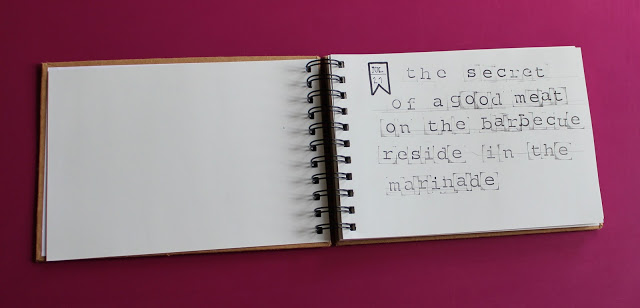 the secret
of a good meat
on the barbecue
reside in the
marinade